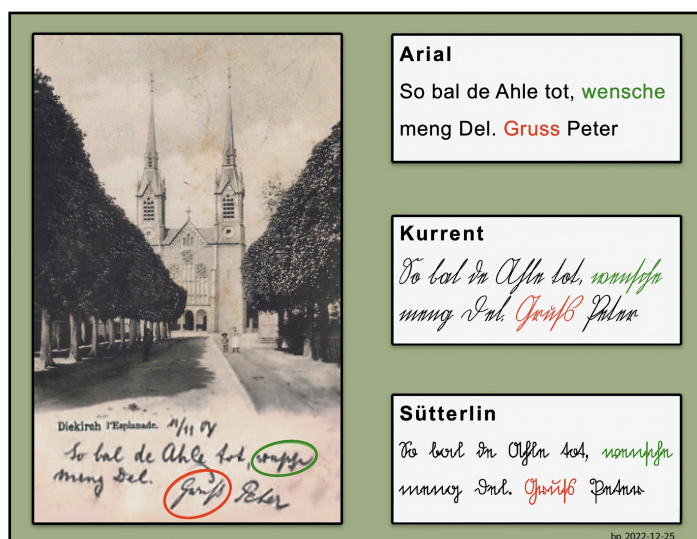 Diekirch l'Esplanade. 11/11 04
So bal de Ahle tot, wensche
meng Del.
Gruss Peter
Arial
So bal de Ahle tot, wensche
meng Del. Gruss Peter
Kurrent
So bal de Ahle tot, wensche
meng Del. Gruss Peter
Sütterlin
So bal de Ahle tot, wensche
meng Del. Gruss Peter
bp 2022-12-25